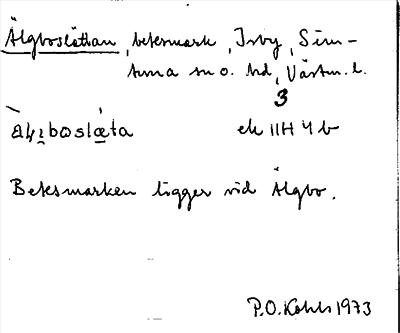 Älgboslättan, betesmark, Isby, Sim-
tuna sn o. hd, Västm. l.
3
àl̥ɉbosl̀æta ek 11H 4b
Betesmarken ligger vid Älgbo.
P.O. Kohls 1973